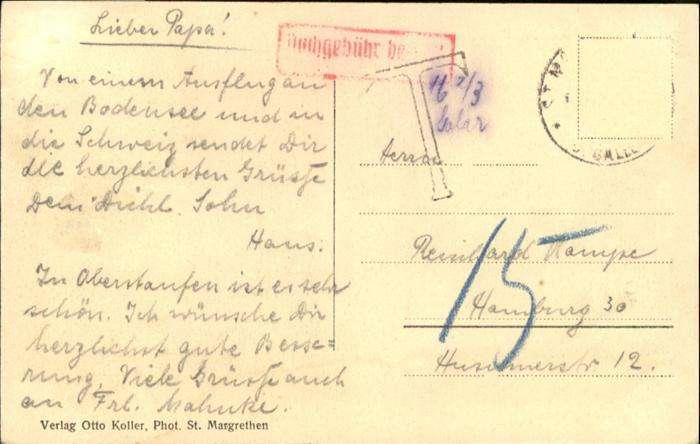 Lieber Papa!
Von einem Ausflug an
den Bodensee und in
die Schweiz sendet Dir
die herzlichsten Grüsse
Dein Sohn
Hans.
In Oberstaufen ist es sehr
schön. Ich wünsche Dir
herzlichst gute Besse=
rung. Viele Grüsse auch
an Frl. Mahnke.
Verlag Otto Koller, Phot. St. Margrethen
Nachgebühr
T
ST. M
GALLE
Herrn
Reinhard Kampe
Hamburg 30
Husumerstr 12.
15